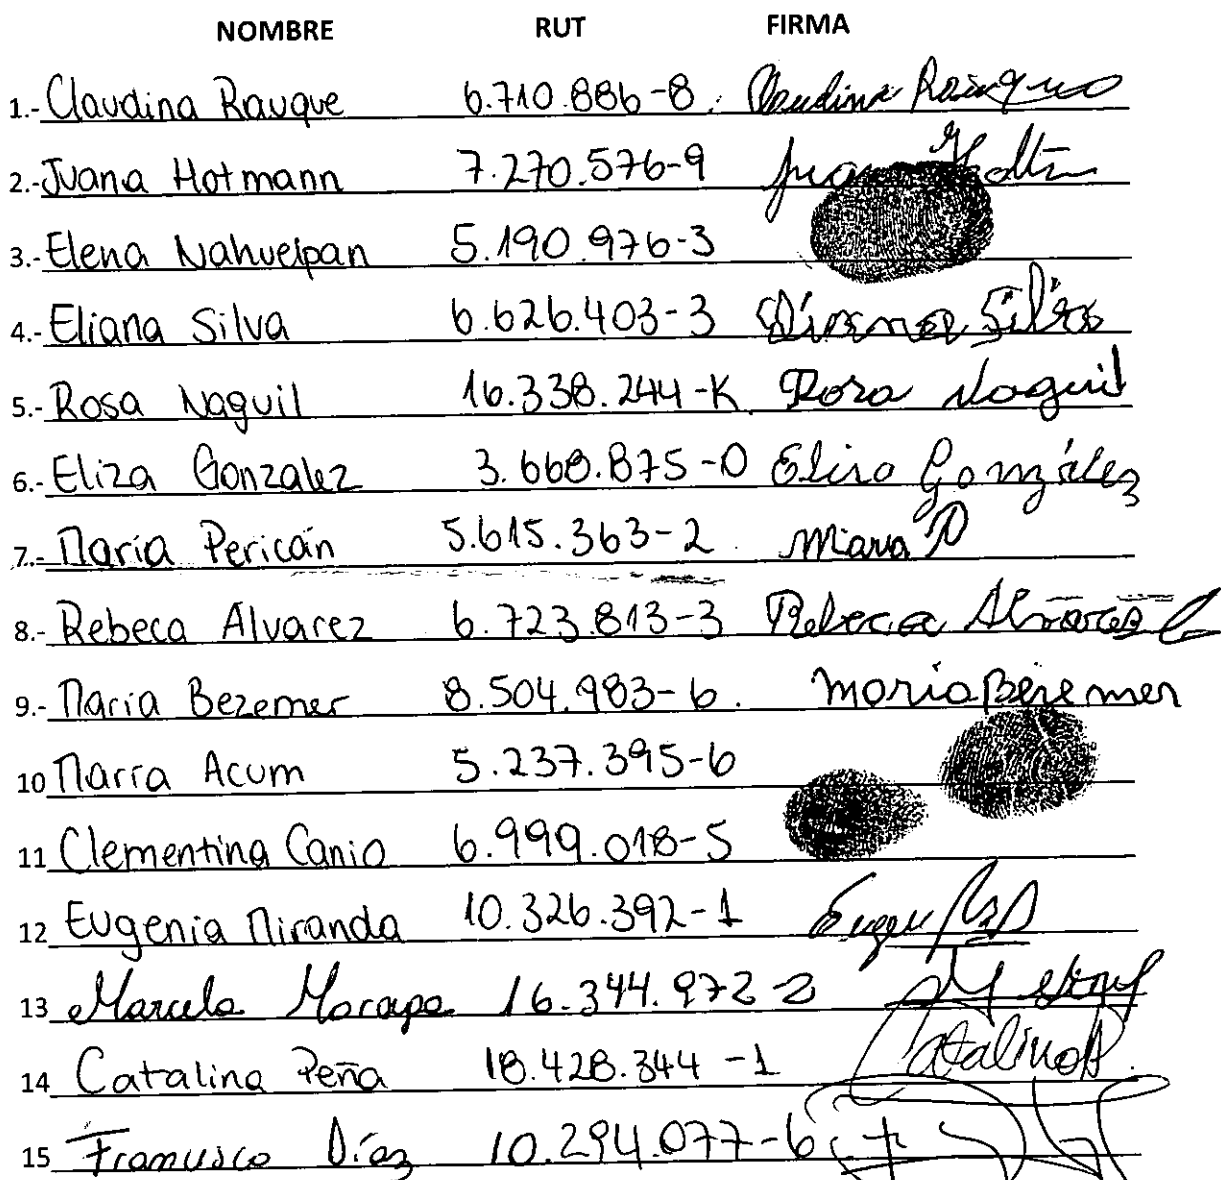 NOMBRE RUT FIRMA
1.- Claudina Rauque 6.710.886-8. Claudina Rauque
2.- Juana Hotmann 7.270.576-9 Juana
3.- Elena Nahuelpan 5.190.976-3
4.- Eliana Silva 6.626.403-3 Silva
5.- Rosa Naguil 16.338.244-K Rosa Naguil
6.- Eliza Gonzalez 3.668.875-0 Elisa González
7.- Maria Pericán 5.615.363-2. Maria P
8.- Rebeca Alvarez 6.723.813-3 Rebeca Alvarez
9.- Maria Bezemer 8.504.983-6. Maria Beremer
10 Maria Acum 5.237.395-6
11 Clementina Canio 6.999.018-5
12 Eugenia Miranda 10.326.392-1
13 Marcela 16.344.972-2
14 Catalina Peña 18.428.344-1 Catalina P.
15 Francisco Díaz 10.294.077-6